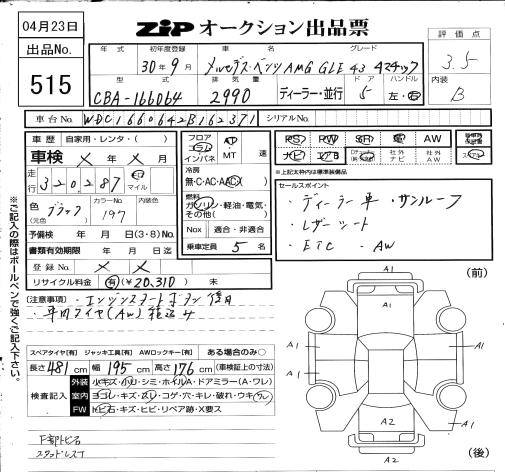 04月23日
出品No.
515
ZIP オークション出品票
評価点
3.5
内装
B
年式
初年度登録
30年9月
車名
メルセデス・ベンツAMG GLE 43 4マチック
グレード
型式
CBA-166064
排気量
2990
ディーラー・並行
ドア
5
ハンドル
左・右
車台No.
WDC1660642B162371
シリアルNo.
車歴 自家用・レンタ・( )
車検 メ年 メ月
走行 320,287 km マイル
色(元色) ブラック
カラーNo. 197
内装色
予備検 年 月 日(3・8)No.
書類有効期限 年 月 日迄
登録No. メ メ
リサイクル料金 有(¥20,310) 未
フロア コラム インパネ
AT・MT 速
冷房
無・C・AC・AAC
燃料
ガソリン・軽油・電気・その他( )
Nox 適合・非適合
乗車定員 5 名
PS PW SR AW
ナビ エアB 社外ナビ 社外AW
※上記太枠内は標準装備品
セールスポイント
・ディーラー車・サンルーフ
・レザーシート
・ETC ・AW
(注意事項)・エンジンスタートボタン使用
・車内タイヤ(AW)積込み
スペアタイヤ[有] ジャッキ工具[有] AWロックキー[有] ある場合のみ○
長さ481cm 幅195cm 高さ176cm(車検証上の寸法)
検査記入
外装 小キズ・小リ・シミ・ホイルA・ドアミラー(A・ワレ)
室内 ヨゴレ・キズ・スレ・コゲ・穴・キレ・破れ・ウキ・ワレ
FW トビ石・キズ・ヒビ・リペア跡・X要ス
下部トビ石
※ご記入の際はボールペンで強くご記入下さい。
(前)
A1
A1
A1
A1
A1
A2
A2
(後)